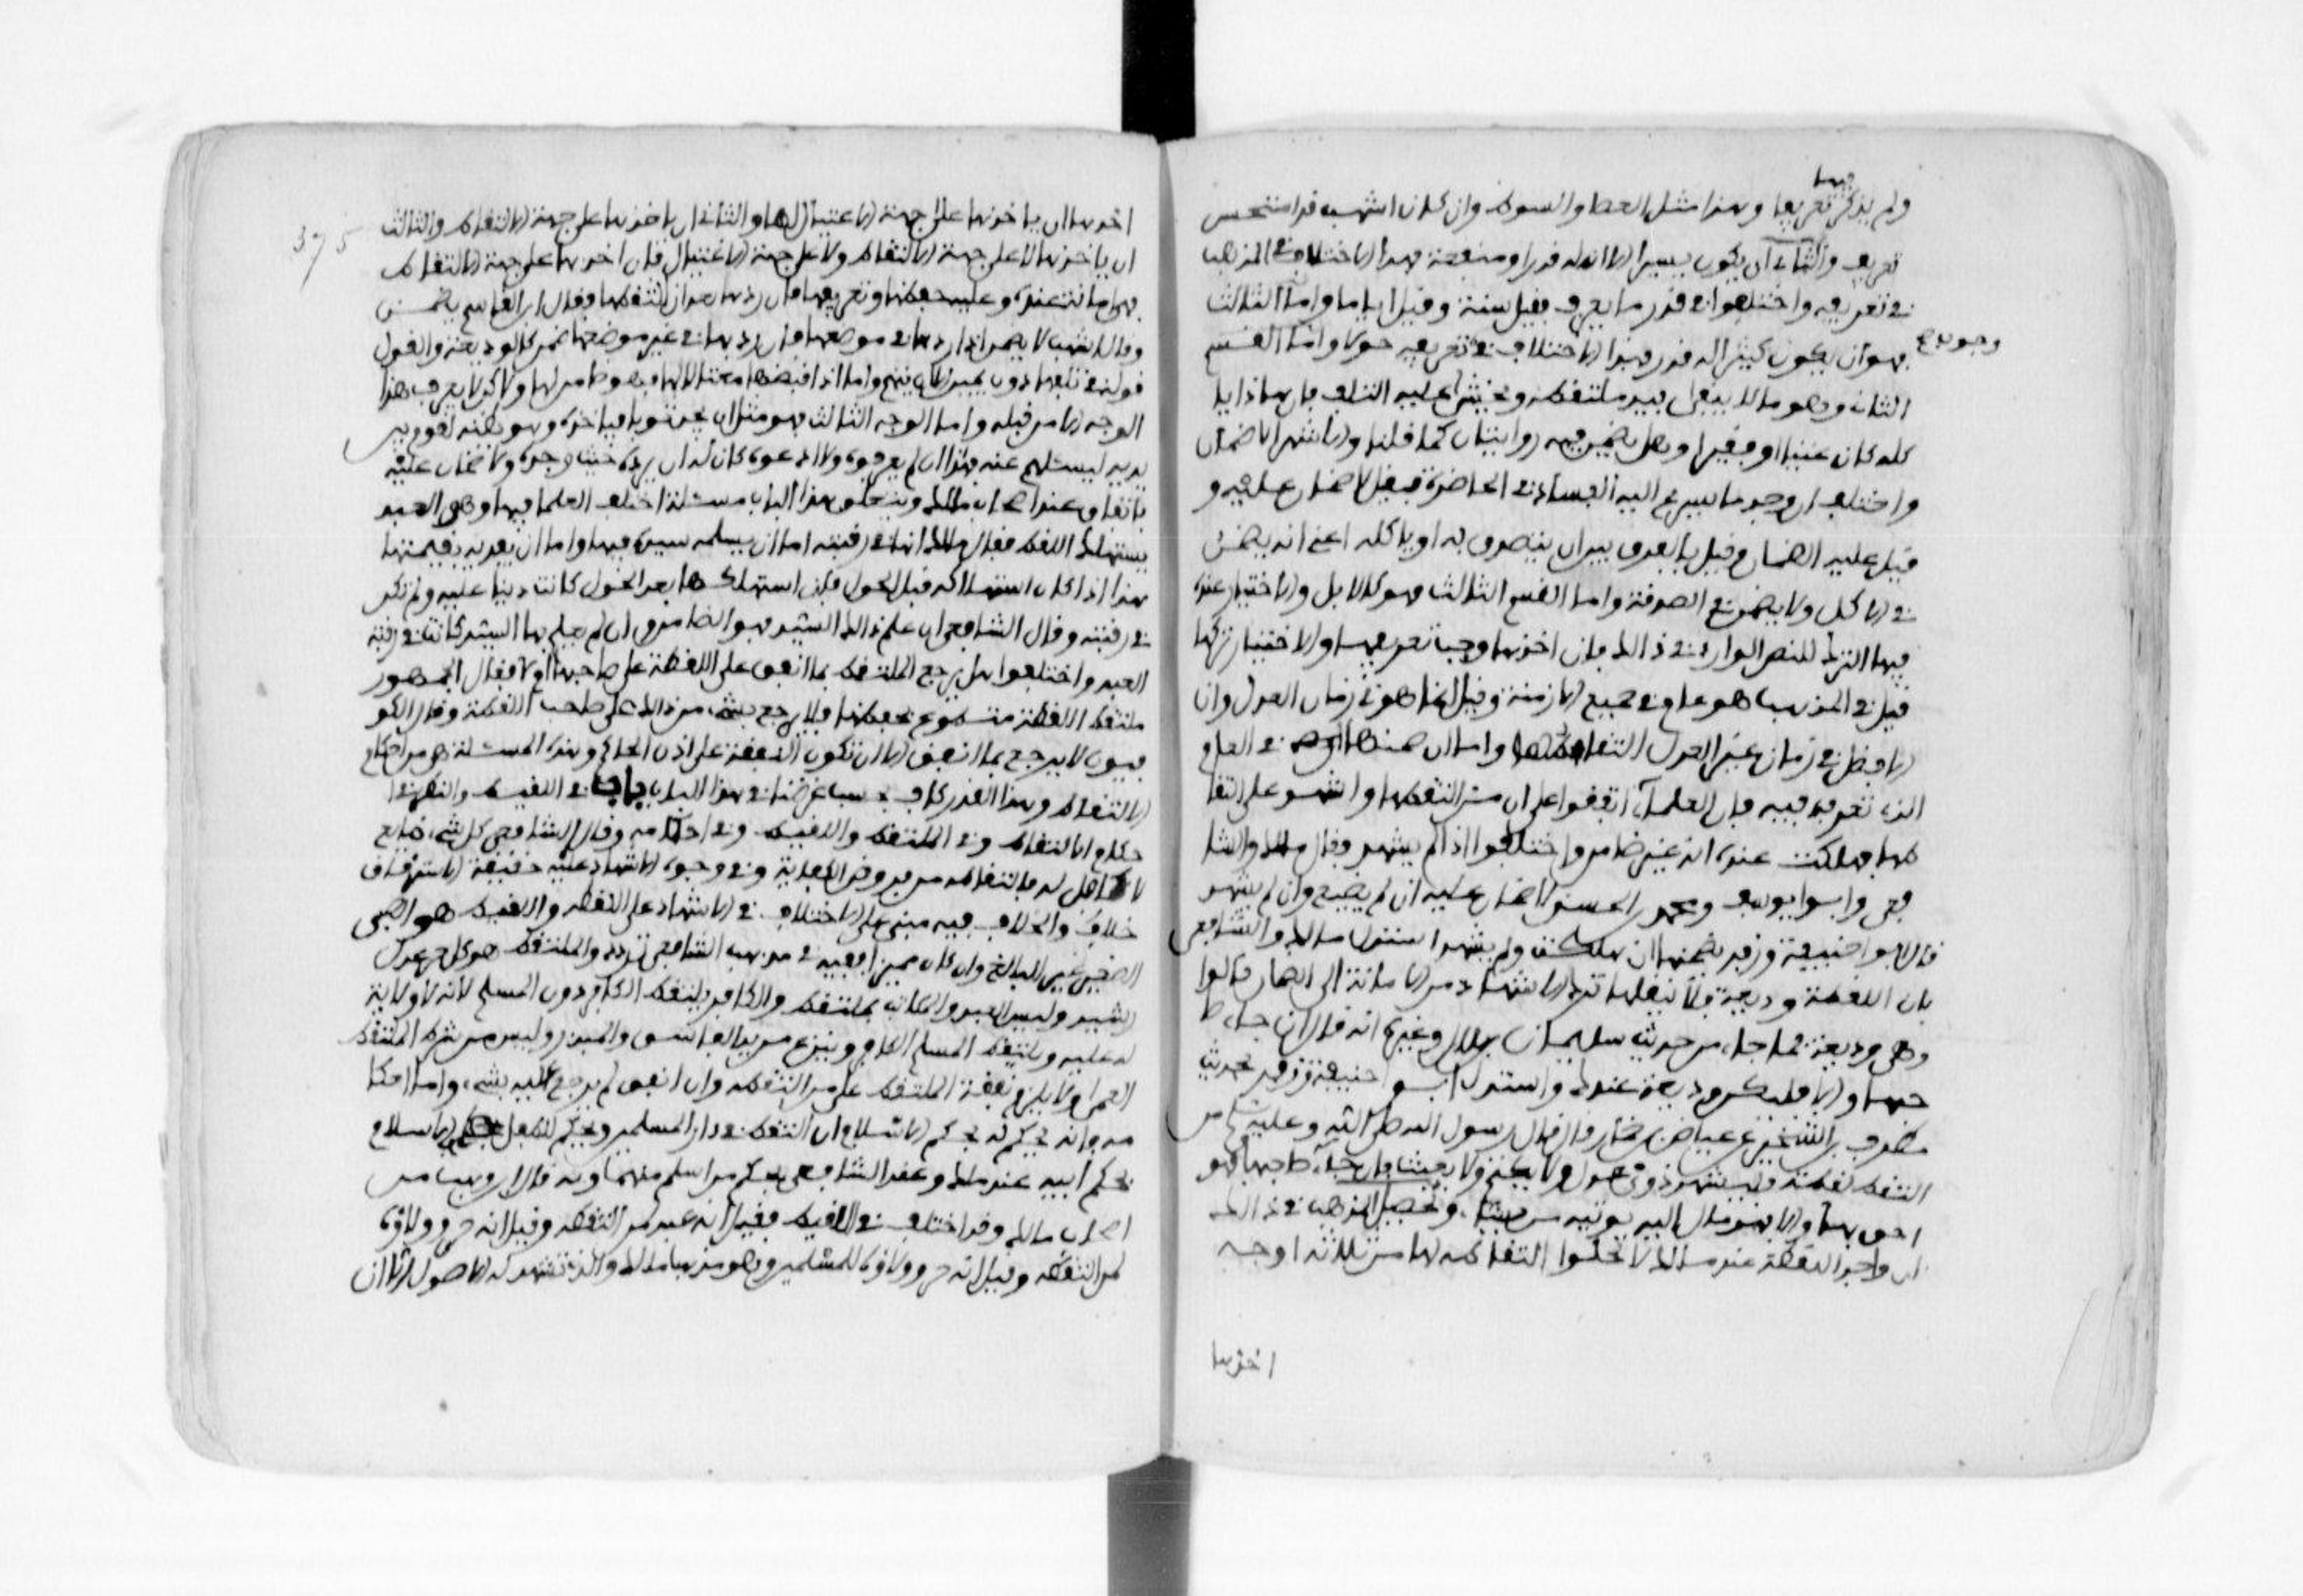 ولم يذكر فيها تعريفا وهذا مثل العصا والسوط وان كان اشهب قد استحسن
تعريفه والثاني ان يكون يسيرا الا ان له قدرا ومنفعة فهذا لا اختلاف في المذهب
في تعريفه واختلفوا في قدر ما يعرف فقيل سنة وقيل اياما واما الثالث
فهو ان يكون كثيرا او له قدر فهذا لا اختلاف في وجوب تعريفه حولا واما القسم
الثاني وهو ما لا يبقى بيد ملتقطه ويخشى عليه التلف فان هذا ياكله
كله كان غنيا او فقيرا وهل يضمن فيه روايتان كما قلنا والاشهر لا ضمان
واختلف ان وجد ما يسرع اليه الفساد في الحاضرة فقيل لا ضمان عليه و
قيل عليه الضمان وقيل بالفرق بين ان يتصدق به او ياكله اعني انه يضمن
في الاكل ولا يضمن في الصدقة واما القسم الثالث فهو كالابل والاختيار عنده
فيها الترك للنص الوارد في ذالك فان اخذها وجب تعريفها والاختيار تركها
قيل في المذهب هو عام في جميع الازمنة وقيل انما هو في زمان العدل وان
الافضل في زمان غير العدل التقاطها واما ان ضمنها في العام
الذي تعرف فيه فان العلماء اتفقوا على ان من التقطها واشهد على التقا
طها فهلكت عنده انه غير ضامن واختلفوا اذا لم يشهد فقال مالك والشا
فعي وابو يوسف ومحمد بن الحسن لا ضمان عليه ان لم يضيع وان لم يشهد
قال ابو حنيفة وزفر يضمنها ان هلكت ولم يشهد استدل مالك والشافعي
بان اللقطة وديعة فلا ينقلها ترك الاشهاد من الامانة الى الضمان قالوا
وهي وديعة بما جاء من حديث سليمان بن بلال وغيره انه قال ان جاء صا
حبها والا فلتكن وديعة عندك واستدل ابو حنيفة وزفر بحديث
مطرف بن الشخير عن عياض بن حمار قال قال رسول الله صلى الله عليه وسلم من
التقط لقطة فليشهد ذوي عدل ولا يكتم ولا يعنت فان جاء صاحبها فهو
احق بها والا فهو مال الله يوتيه من يشاء وتحصيل المذهب في ذالك
ان واجد اللقطة عند مالك لا تخلوا التقاطه لها من ثلاثة اوجه
اخذها
375
احدها ان ياخذها على جهة الاغتيال لها والثاني ان ياخذها على جهة الالتقاط والثالث
ان ياخذها لا على جهة الالتقاط ولا على جهة الاغتيال فان اخذها على جهة الالتقاط
فهي امانة عنده وعليه حفظها وتعريفها فان ردها بعد ان التقطها فقال ابن القاسم يضمن
وقال اشهب لا يضمن اذا ردها في موضعها فان ردها في غير موضعها ضمن كالوديعة والقول
قوله في تلفها دون يمين الا ان يتهم واما اذا قبضها مغتالا لها فهو ضامن لها ولا كن لا يعرف هذا
الوجه الا من قبله واما الوجه الثالث فهو مثل ان يجد ثوبا فياخذه وهو يظنه لقوم بين
يديه ليسئلهم عنه فهذا ان لم يعرفوه ولا ادعوه كان له ان يرده حيث وجده ولا ضمان عليه
باتفاق عند اصحاب مالك ويتعلق بهذا الباب مسئلة اختلف العلماء فيها وهي العبد
يستهلك اللقطة فقال مالك انها في رقبته اما ان يسلمه سيده فيها واما ان يفديه بقيمتها
هذا اذا كان استهلاكه قبل الحول فان استهلكها بعد الحول كانت دينا عليه ولم تكن
في رقبته وقال الشافعي ان علم بذالك السيد فهو الضامن وان لم يعلم بها السيد كانت في رقبة
العبد واختلفوا هل يرجع الملتقط بما انفق على اللقطة على صاحبها ام لا فقال الجمهور
ملتقط اللقطة متطوع بحفظها فلا يرجع بشيء من ذالك على صاحب اللقطة وقال الكو
فيون لا يرجع بما انفق الا ان تكون النفقة على اذن الحاكم وهذه المسئلة هي من احكام
الالتقاط وهذا القدر كاف بحسب غرضنا في هذا الباب باب في اللقيط والنظر في ا
حكام الالتقاط وفي الملتقط واللقيط وفي احكامه وقال الشافعي كل شيء ضايع
لا كافل له فالتقاطه من فروض الكفاية وفي وجوب الاشهاد عليه خيفة الاسترقاق
خلاف والخلاف فيه مبني على الاختلاف في الاشهاد على اللقطة واللقيط هو الصبي
الصغير غير البالغ وان كان مميزا ففيه في مذهب الشافعي تردد والملتقط هو كل حر عدل
رشيد وليس العبد والمكاتب بملتقط والكافر يلتقط الكافر دون المسلم لانه لا ولاية
له عليه ويلتقط المسلم الكافر وينزع من يد الفاسق والمبذر وليس من شرط الملتقط
الغنى ولا يلزم نفقة الملتقط على من التقطه وان انفق لم يرجع عليه بشيء واما احكا
مه فانه يحكم له بحكم الاسلام ان التقط في دار المسلمين ويحكم للطفل بالاسلام
بحكم ابيه عند مالك وعند الشافعي بحكم من اسلم منهما وبه قال ابن وهب من
اصحاب مالك وقد اختلف في اللقيط فقيل انه عبد لمن التقطه وقيل انه حر وولاؤه
لمن التقطه وقيل انه حر وولاؤه للمسلمين وهو مذهب مالك والذي تشهد له الاصول الا ان